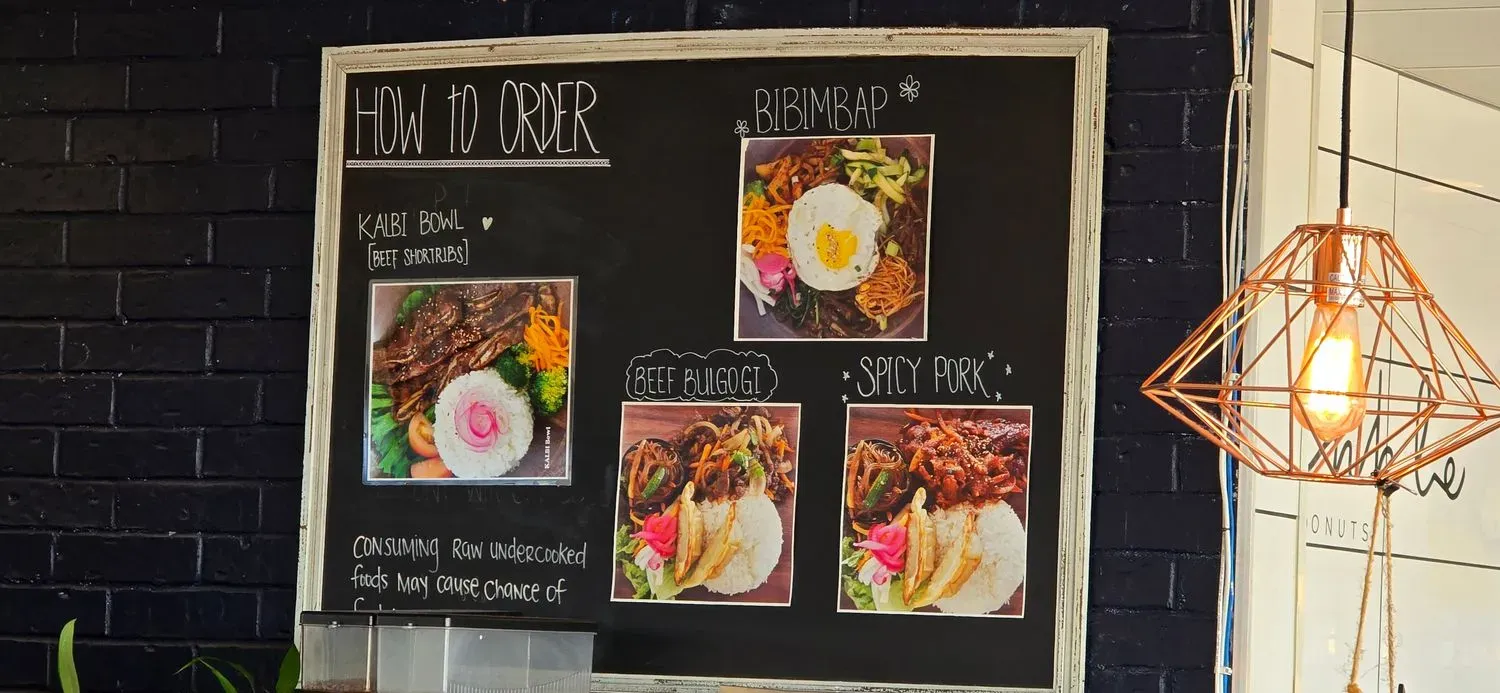 HOW to ORDER
KALBI BOWL
[BEEF SHORTRIBS]
KALBI Bowl
CONSUMING RAW UNDERCOOKED
foods MAY CAUSE CHANCE OF
BIBIMBAP
BEEF BULGOGI
SPICY PORK
ONUTS